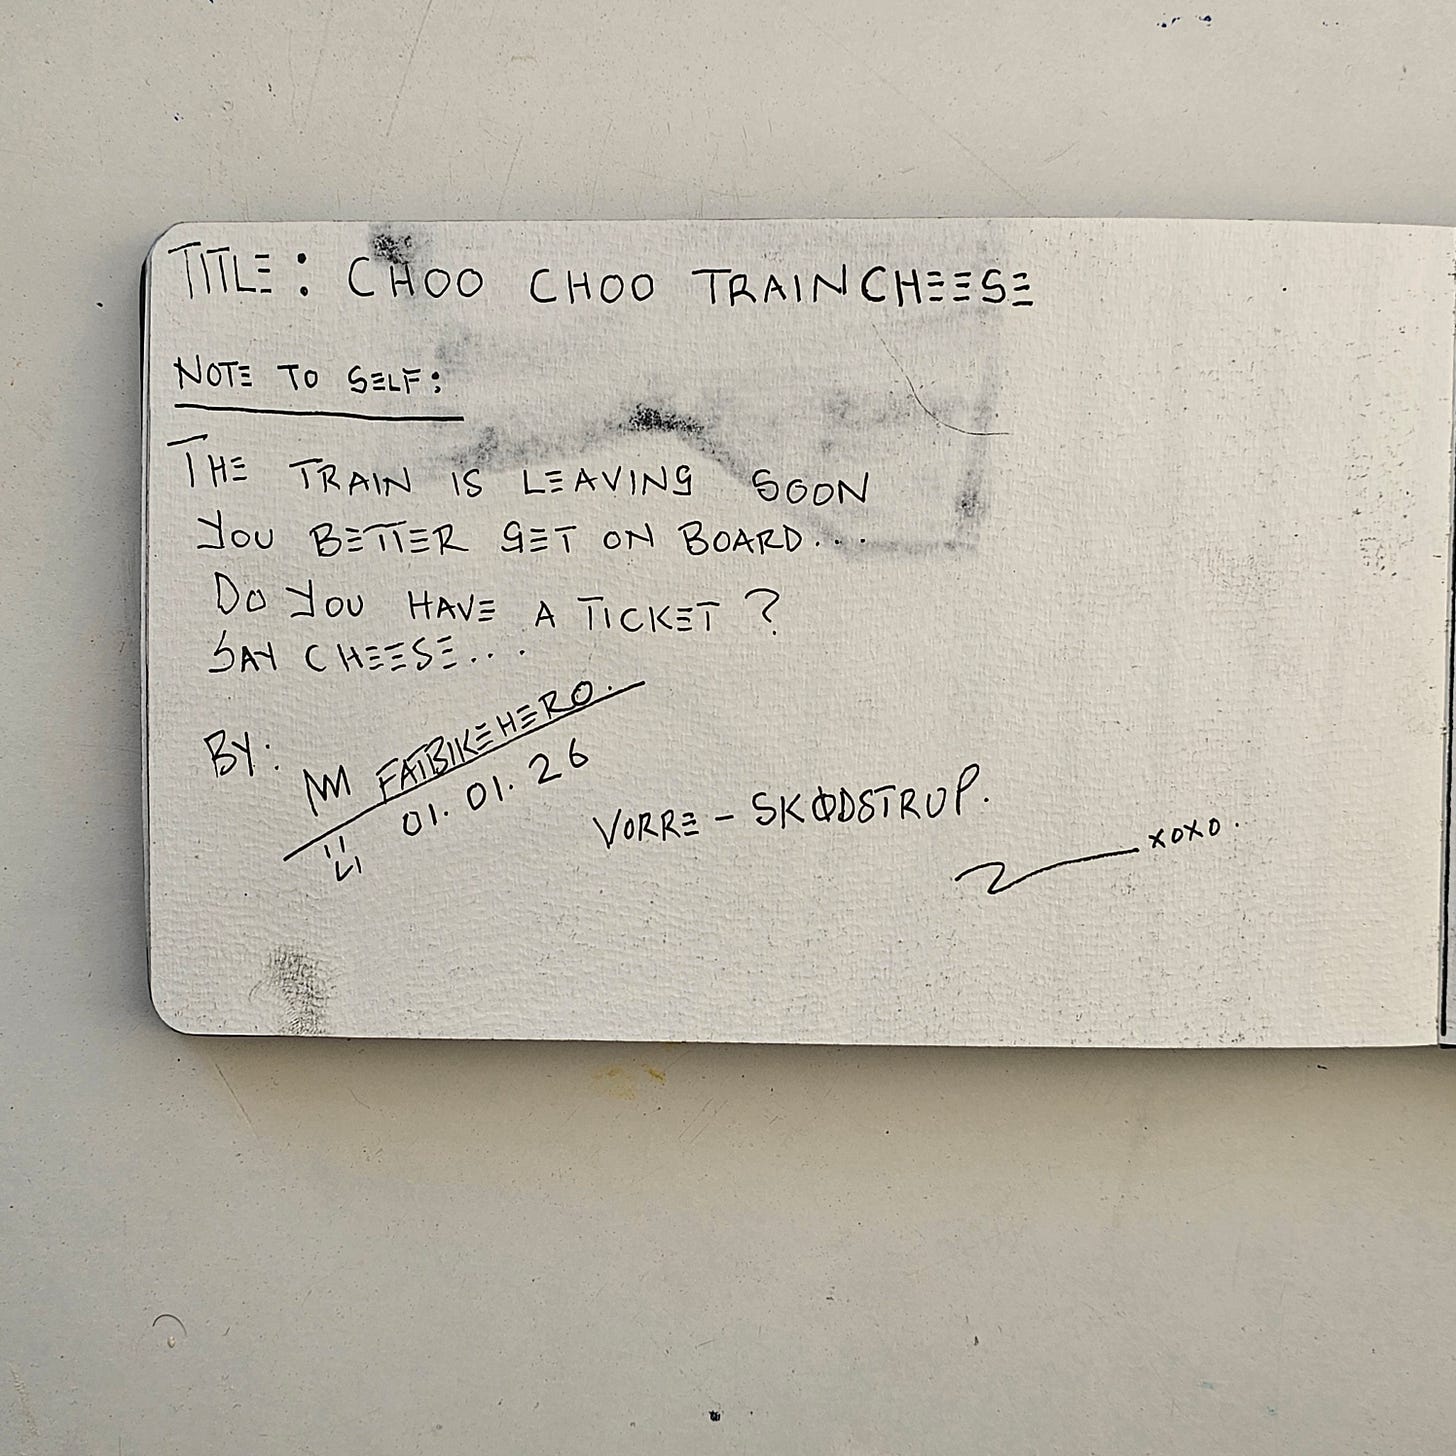 TITLE: CHOO CHOO TRAINCHEESE
NOTE TO SELF:
THE TRAIN IS LEAVING SOON
YOU BETTER GET ON BOARD...
DO YOU HAVE A TICKET?
SAY CHEESE...
BY: FATBIKEHERO.
01.01.26
VORRE - SKØDSTRUP.
XOXO.